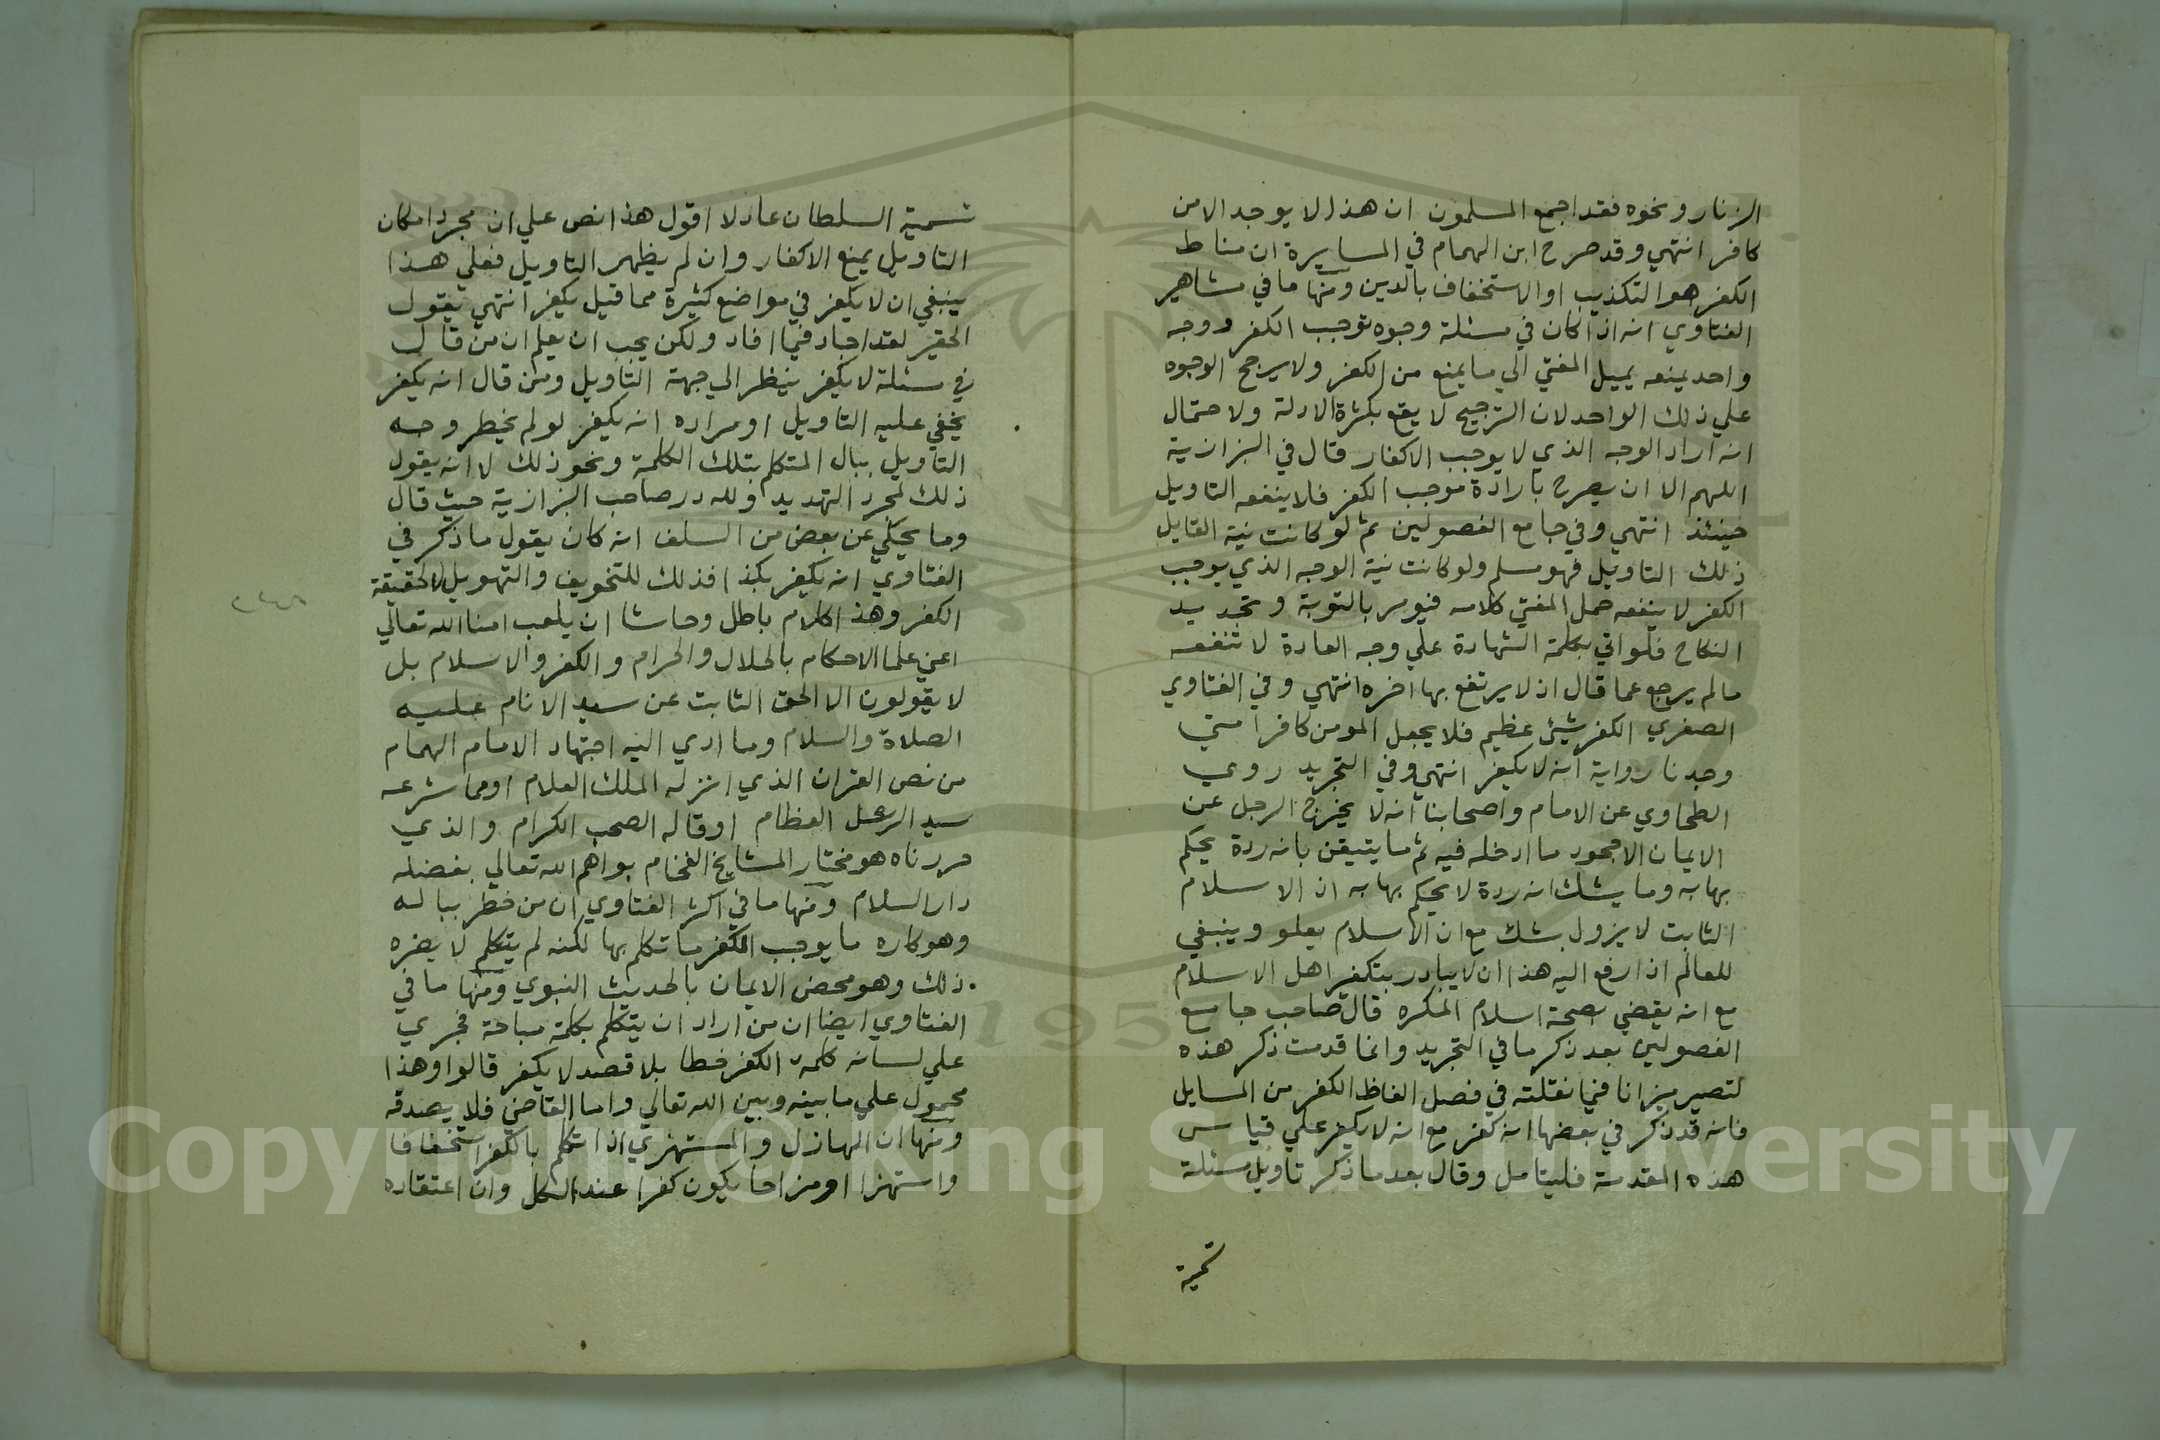 الزنار ونحوه فقد اجمع المسلمون ان هذا لا يوجد الا من
كافر انتهي وقد صرح ابن الهمام في المسايرة ان مناط
الكفر هو التكذيب او الاستخفاف بالدين ومنها ما في مشاهير
الفتاوي انه اذا كان في مسئلة وجوه توجب الكفر ووجه
واحد يمنعه يميل المفتي الي ما يمنع من الكفر ولا يرجح الوجوه
علي ذلك الواحد لان الترجيح لا يقع بكثرة الادلة ولاحتمال
انه اراد الوجه الذي لا يوجب الاكفار قال في البزازية
اللهم الا ان يصرح بارادة موجب الكفر فلا ينفعه التاويل
حينئذ انتهي وفي جامع الفصولين ثم لو كانت نية القايل
ذلك التاويل فهو مسلم ولو كانت نية الوجه الذي يوجب
الكفر لا ينفعه حمل المفتي كلامه فيومر بالتوبة وتجديد
النكاح فلو اتي بكلمة الشهادة علي وجه العادة لا تنفعه
ما لم يرجع عما قال اذ لا يرتفع بها اخره انتهي وفي الفتاوي
الصغري الكفر شيئ عظيم فلا يجعل المومن كافرا متي
وجدنا رواية انه لا يكفر انتهي وفي التجريد روي
الطحاوي عن الامام واصحابنا انه لا يخرج الرجل عن
الايمان الا جحود ما ادخله فيه ثم ما يتيقن بانه ردة يحكم
بها به وما يشك انه ردة لا يحكم بها به اذ الاسلام
الثابت لا يزول بشك مع ان الاسلام يعلو وينبغي
للعالم اذا رفع اليه هذا ان لا يبادر بتكفير اهل الاسلام
مع انه يقضي بصحة اسلام المكره قال صاحب جامع
الفصولين بعد ذكر ما في التجريد وانما قدمت ذكر هذه
لتصير ميزانا فيما نقلته في فصل الفاظ الكفر من المسايل
فانه قد ذكر في بعضها انه كفر مع انه لا يكفر علي قياس
هذه المقدمة فليتامل وقال بعد ما ذكر تاويل مسئلة
تسمية
تسمية السلطان عادلا اقول هذا نص علي ان مجرد امكان
التاويل يمنع الاكفار وان لم يظهر التاويل فعلي هذا
ينبغي ان لا يكفر في مواضع كثيرة مما قيل يكفر انتهي يقول
الحقير لقد اجاد فيما افاد ولكن يجب ان يعلم ان من قال
في مسئلة لا يكفر ينظر الي جهة التاويل ومن قال انه يكفر
يخفي عليه التاويل او مراده انه يكفر لو لم يخطر وجه
التاويل ببال المتكلم بتلك الكلمة ونحو ذلك لا انه يقول
ذلك لمجرد التهديد ولله در صاحب البزازية حيث قال
وما يحكي عن بعض من السلف انه كان يقول ما ذكر في
الفتاوي انه يكفر بكذا فذلك للتخويف والتهويل لا لحقيقة
الكفر وهذا كلام باطل وحاشا ان يلعب امنا الله تعالي
اعني علما الاحكام بالحلال والحرام والكفر والاسلام بل
لا يقولون الا الحق الثابت عن سيد الانام عليه
الصلاة والسلام وما ادي اليه اجتهاد الامام الهمام
من نص القران الذي انزله الملك العلام او مما شرعه
سيد الرسل العظام او قاله الصحب الكرام والذي
حررناه هو مختار المشايخ الفخام بواهم الله تعالي بفضله
دار السلام ومنها ما في اكثر الفتاوي ان من خطر بباله
وهو كاره ما يوجب الكفر ما تكلم بها لكنه لم يتكلم لا يضره
ذلك وهو محض الايمان بالحديث النبوي ومنها ما في
الفتاوي ايضا ان من اراد ان يتكلم بكلمة مباحة فجري
علي لسانه كلمة الكفر خطا بلا قصد لا يكفر قالوا وهذا
محمول علي ما بينه وبين الله تعالي واما القاضي فلا يصدقه
ومنها ان الهازل والمستهزي اذا تكلم بالكفر استخفافا
واستهزا او مزاحا يكون كفرا عند الكل وان اعتقاده
Copyright © King Saud University
1957